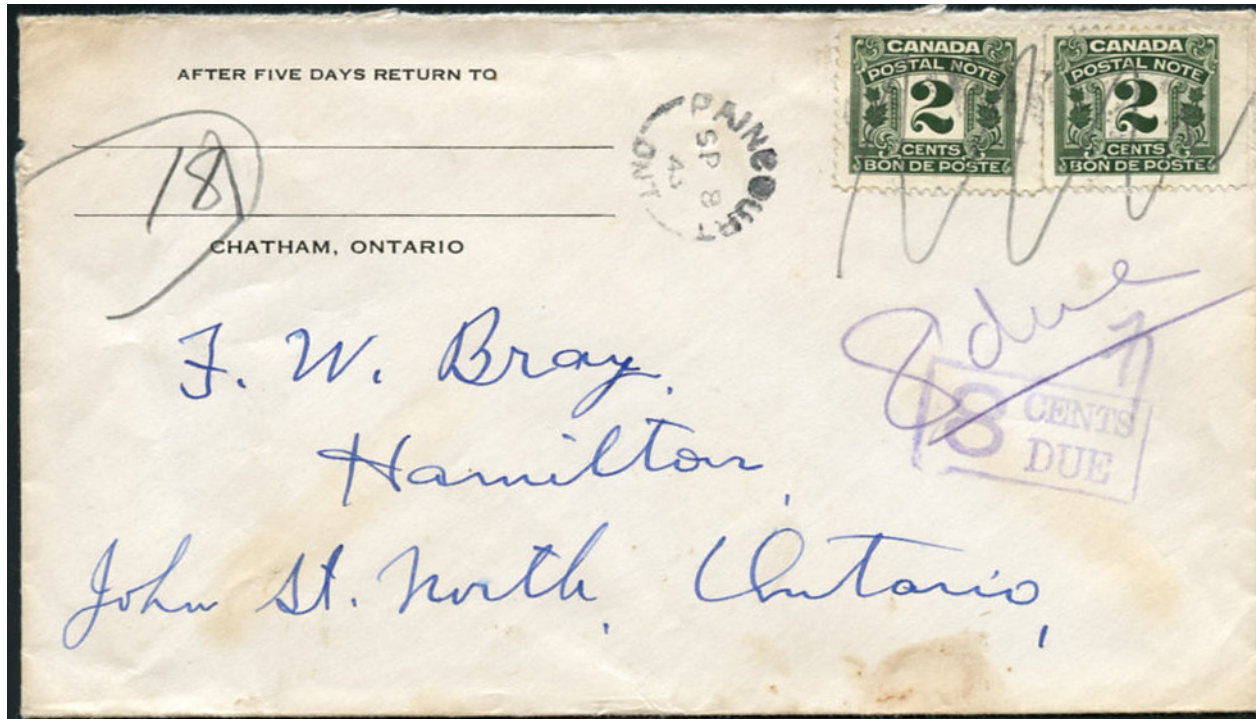 AFTER FIVE DAYS RETURN TO
18
CHATHAM, ONTARIO
PAINCOURT
SP 8
ONT
CANADA
POSTAL NOTE
2
CENTS
BON DE POSTE
CANADA
POSTAL NOTE
2
CENTS
BON DE POSTE
8 due
7
8 CENTS
DUE
F. W. Bray,
Hamilton,
John St. North, Ontario,